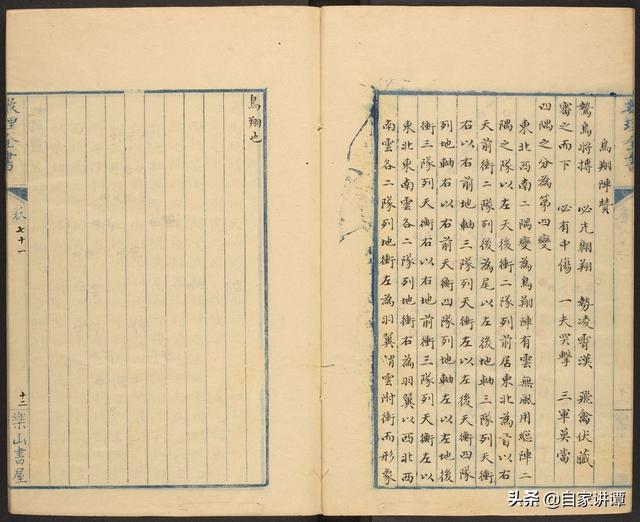 鳥翔陣贊
鷙鳥將搏　必先翺翔　勢凌霄漢　飛禽伏藏
審之而下　必有中傷　一夫突擊　三軍莫當
四隅之分為第四變
東北西南二隅變為鳥翔陣有雲無風用總陣二
隅之隊以左天後衝二隊列前居東北為首以右
天前衝二隊列後為尾以左後地軸三隊列天衝
右以右前地軸三隊列天衝左以左後天衝四隊
列地軸右以右前天衝四隊列地軸左以左後地
衝三隊列天衝右以右地前衝三隊列天衝左以
東北東南雲各二隊列地衝右為羽翼以西北西
南雲各二隊列地衝左為羽翼渭雲附衝而形象
鳥翔也
數理全書
卷七十一
十二
樂山書屋
头条 @自家讲谭